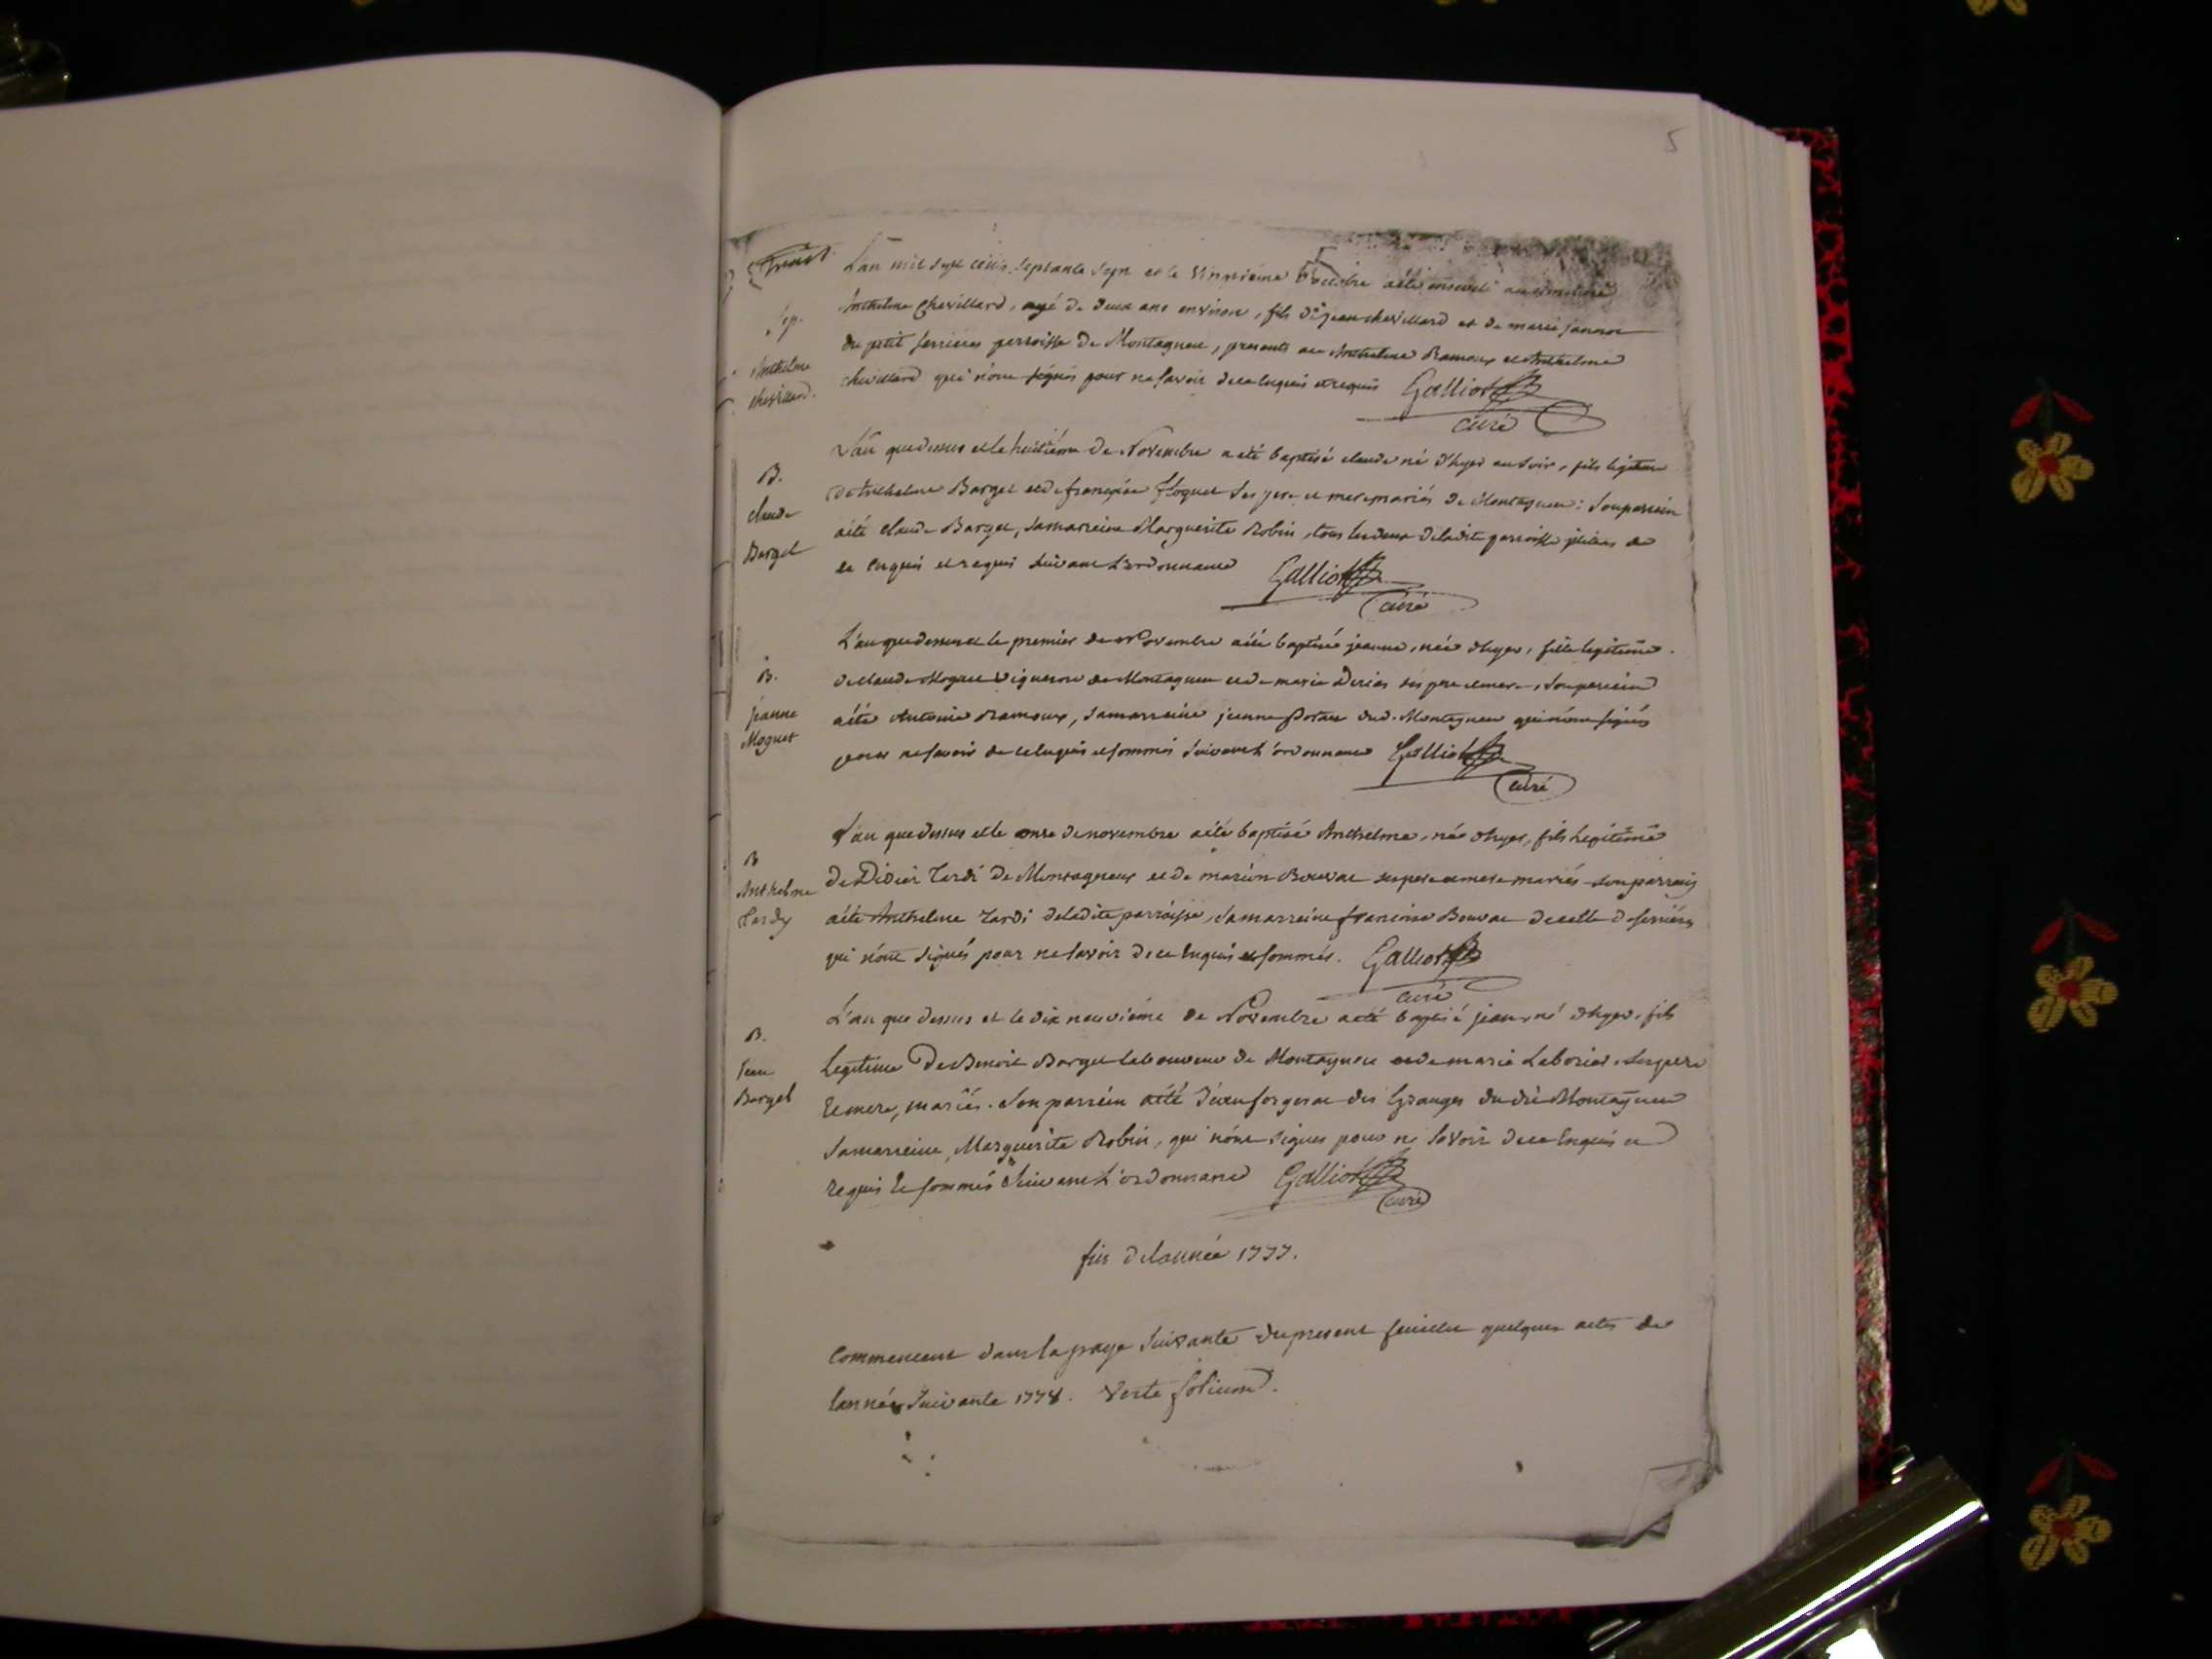 5
L'an mil sept cens septante sept et le vingtième octobre a été enseveli au cimetiere
Sep.
Anthelme
chevillard.
Anthelme chevillard, agé de deux ans environ, fils de jean chevillard et de marie
du petit serrieres parroisse de Montagneu, presents Anthelme Ramoux et Anthelme
chevillard qui n'ont signés pour ne savoir de ce enquis et requis Galliot
curé
B.
claude
Barget
L'an que dessus et le huitième de Novembre a été baptisé claude né d'hyer au soir, fils legitime
de Anthelme Barget et de françoise ses pere et mere mariés de Montagneu: Son parrein
a été claude Barget, sa marreine Marguerite Robin, tous les deux de la dite parroisse de
ce enquis et requis suivant l'ordonnance Galliot
curé
B.
jeanne
Moguet
L'an que dessus et le premier de Novembre a été baptisée jeanne, née d'hyer, fille legitime
de claude Moguet vigneron de Montagneu et de marie ses pere et mere, son parrein
a été Antoine Ramoux, sa marreine jeanne dud. Montagneu qui n'ont signés
pour ne savoir de ce enquis et sommés suivant l'ordonnance Galliot
curé
B
Anthelme
Tardy
L'an que dessus et le onze de novembre a été baptisé Anthelme, né d'hyer, fils legitime
de Didier Tardi de Montagneux et de marion Bouvat ses pere et mere mariés son parrein
a été Anthelme Tardi de la dite parroisse, sa marreine francoise Bouvat de celle de serrieres
qui n'ont signés pour ne savoir de ce enquis et sommés. Galliot
curé
B.
Jean
Barget
L'an que dessus et le dix neuvième de Novembre a été baptisé jean né d'hyer, fils
legitime de Benoit Barget laboureur de Montagneu et de marie Laborier, ses pere
et mere, mariés. Son parrein a été des Granges du dit Montagneu
sa marreine, Marguerite Robin, qui n'ont signés pour ne savoir de ce enquis et
requis et sommés suivant l'ordonnance Galliot
curé
fin de l'année 1777.
Commencent dans la page suivante du present feuillet quelques actes de
l'année suivante 1778. Verte folium.